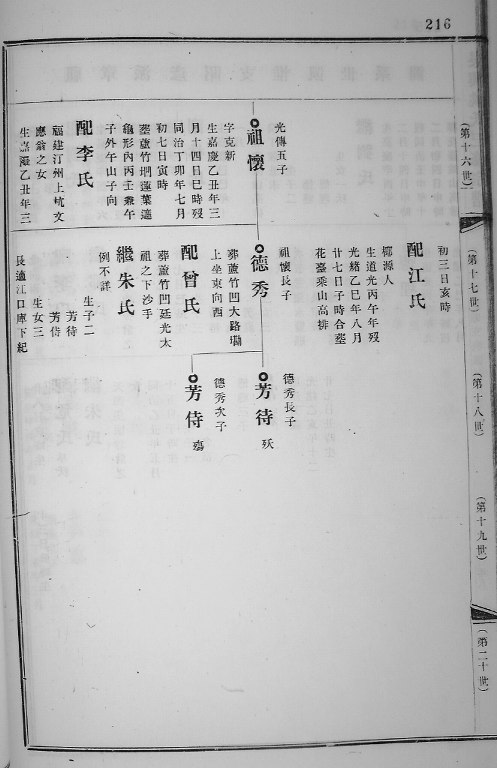 216
(第十六世)
光傳五子
祖懷
字克新
生嘉慶乙丑年三
月十四日巳時歿
同治丁卯年七月
初七日寅時
葬蘆竹垇蓮葉遶
龜形內丙壬兼午
子外午山子向
配李氏
福建汀州上坑文
應翁之女
生嘉慶乙丑年三
(第十七世)
初三日亥時
配江氏
鄉源人
生道光丙午年歿
光緒乙巳年八月
廿七日子時合墓
花臺乘山高排
祖懷長子
德秀
葬蘆竹凹大路塝
上坐東向西
配曾氏
葬蘆竹凹廷光太
祖之下沙手
繼朱氏
例不詳
生子二
芳待
芳侍
生女三
長適江口庫下紀
(第十八世)
德秀長子
芳待
殀
德秀次子
芳侍
殤
(第十九世)
(第二十世)